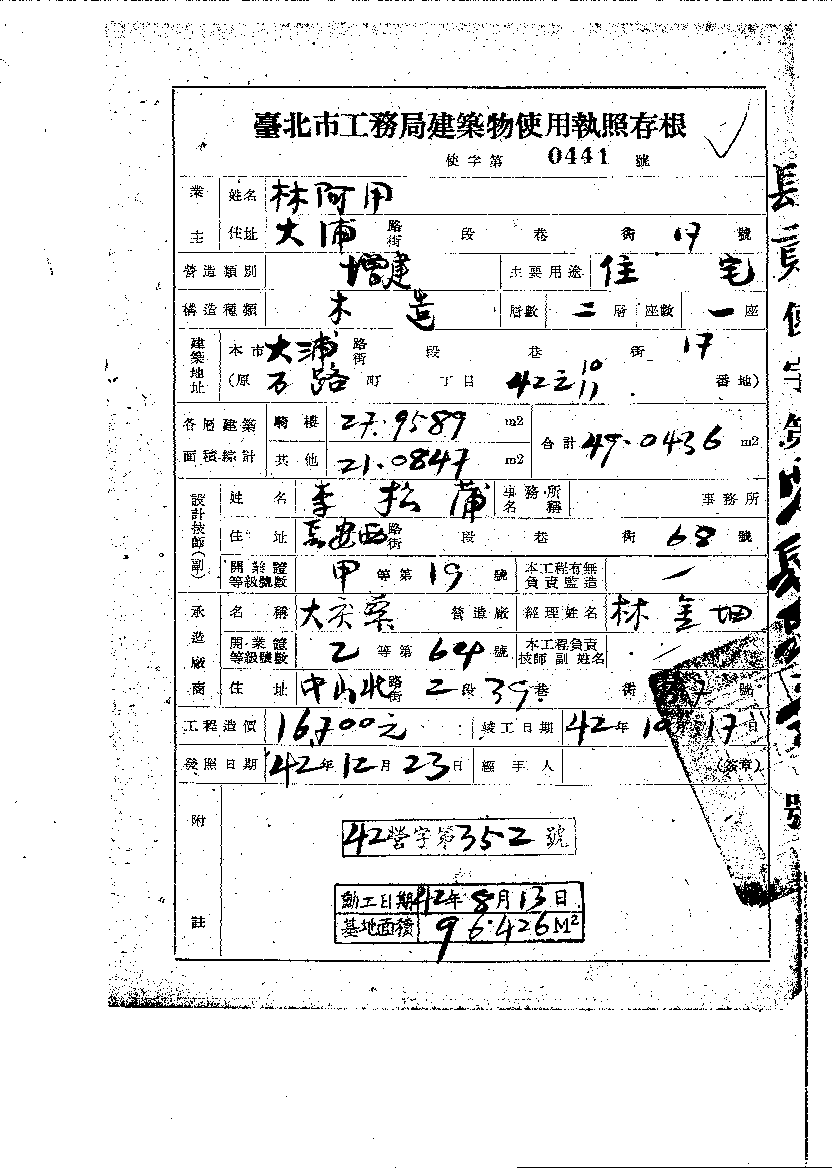 臺北市工務局建築物使用執照存根
使字第 0441 號
業主 姓名 林阿甲
住址 大浦 路街 段 巷 街 17 號
營造類別 增建 主要用途 住宅
構造種類 木造 層數 二層 座數 一座
建築地址 本市 大浦 路街 段 巷 街 17
(原 下路 町 丁目 42之10 11 番地)
各層建築面積綜計 騎樓 27.9589 m2 合計 49.0436 m2
其他 21.0847 m2
設計技師(副) 姓名 李松蒲 事務所名稱 事務所
住址 長安西 路街 段 巷 街 68 號
開業證等級號數 甲 等第 19 號 本工程有無負責監造 /
承造廠商 名稱 營造廠 經理姓名 林金
開業證等級號數 乙 等第 64 號 本工程負責技師副姓名 /
住址 中山北 路街 二段 39 巷 街 號
工程造價 16,700元 竣工日期 42年10月17日
發照日期 42年12月23日 經手人 (簽章)
附註
42營字第352號
動工日期 42年8月13日
基地面積 96.426M²
長 使字第 號